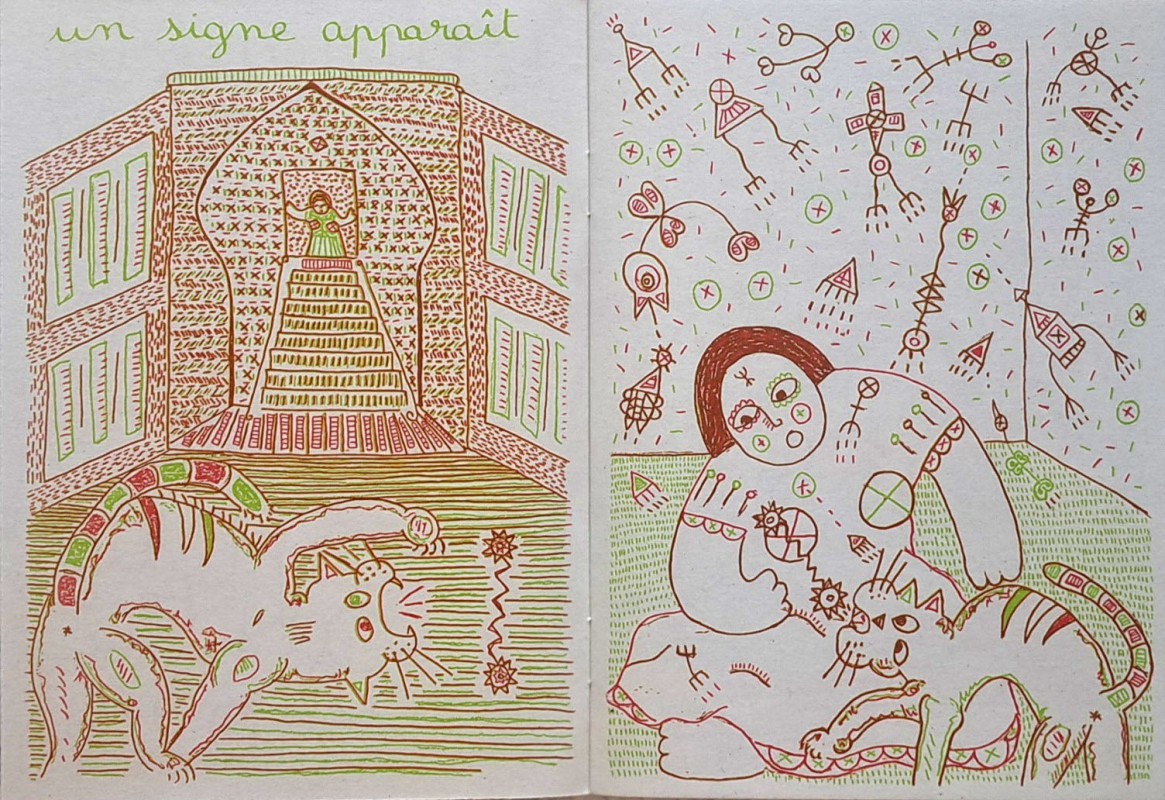 un signe apparaît